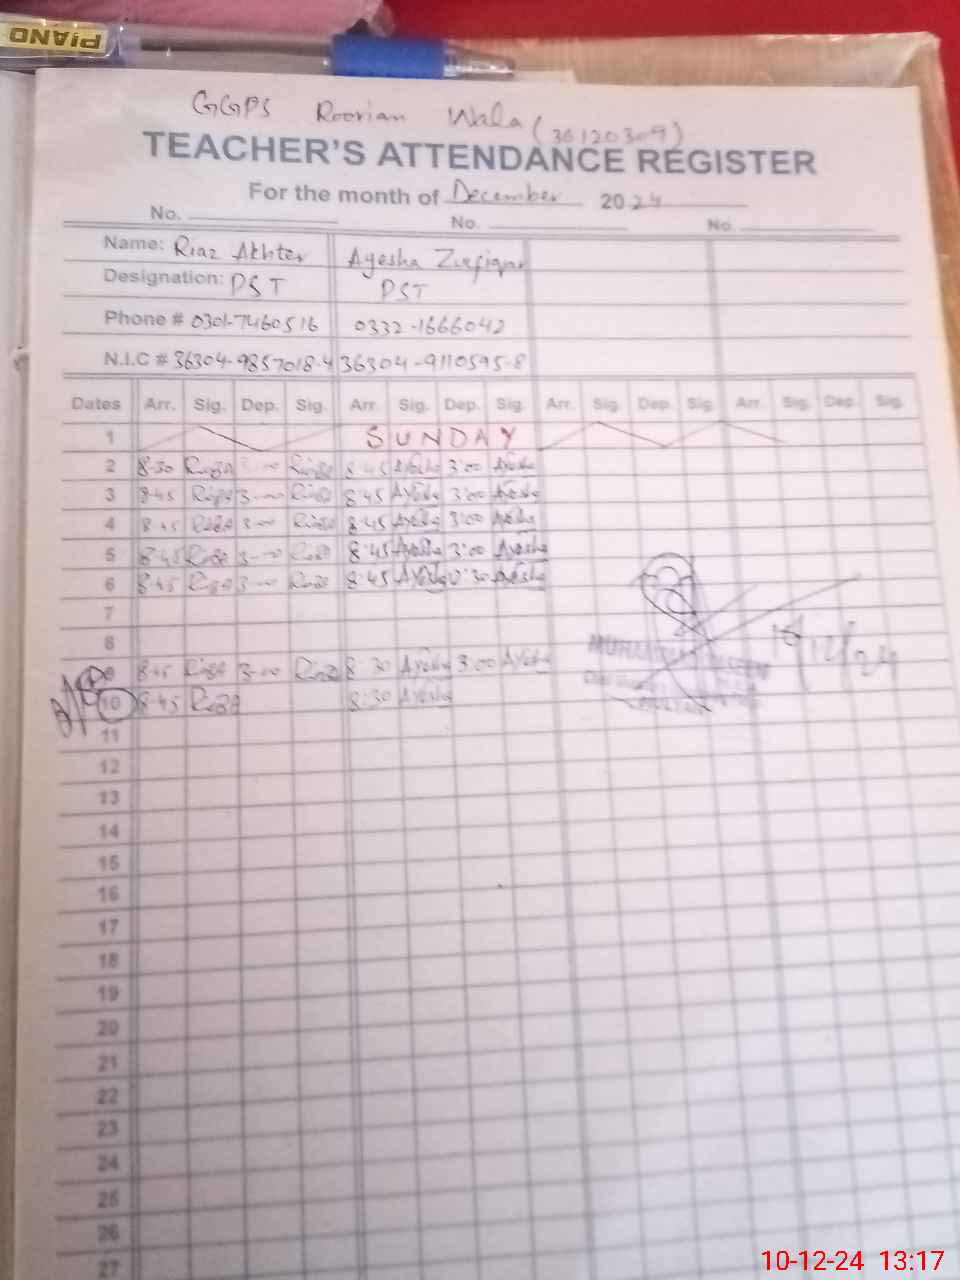 PIANO
GGPS Roorian Wala (36120309)
TEACHER'S ATTENDANCE REGISTER
For the month of December 2024
No. No. No.
Name: Riaz Akhter Ayesha Zulfiqar
Designation: PST PST
Phone # 0301-7460516 0332-1666042
N.I.C # 36304-9857018-4 36304-9110595-8
Dates Arr. Sig. Dep. Sig. Arr. Sig. Dep. Sig. Arr. Sig. Dep. Sig. Arr. Sig. Dep. Sig.
1 SUNDAY
2 8-30 3-00 8:45 Ayesha 3:00 Ayesha
3 8-45 3-00 8:45 Ayesha 3:00 Ayesha
4 8-45 3-00 8:45 Ayesha 3:00 Ayesha
5 8-45 3-00 8:45 Ayesha 3:00 Ayesha
6 8-45 3-00 8:45 Ayesha Ayesha
7
8
9 8-45 3-00 8:30 Ayesha 3:00 Ayesha
10 8-45 8:30 Ayesha
11
12
13
14
15
16
17
18
19
20
21
22
23
24
25
26
27
10-12-24 13:17